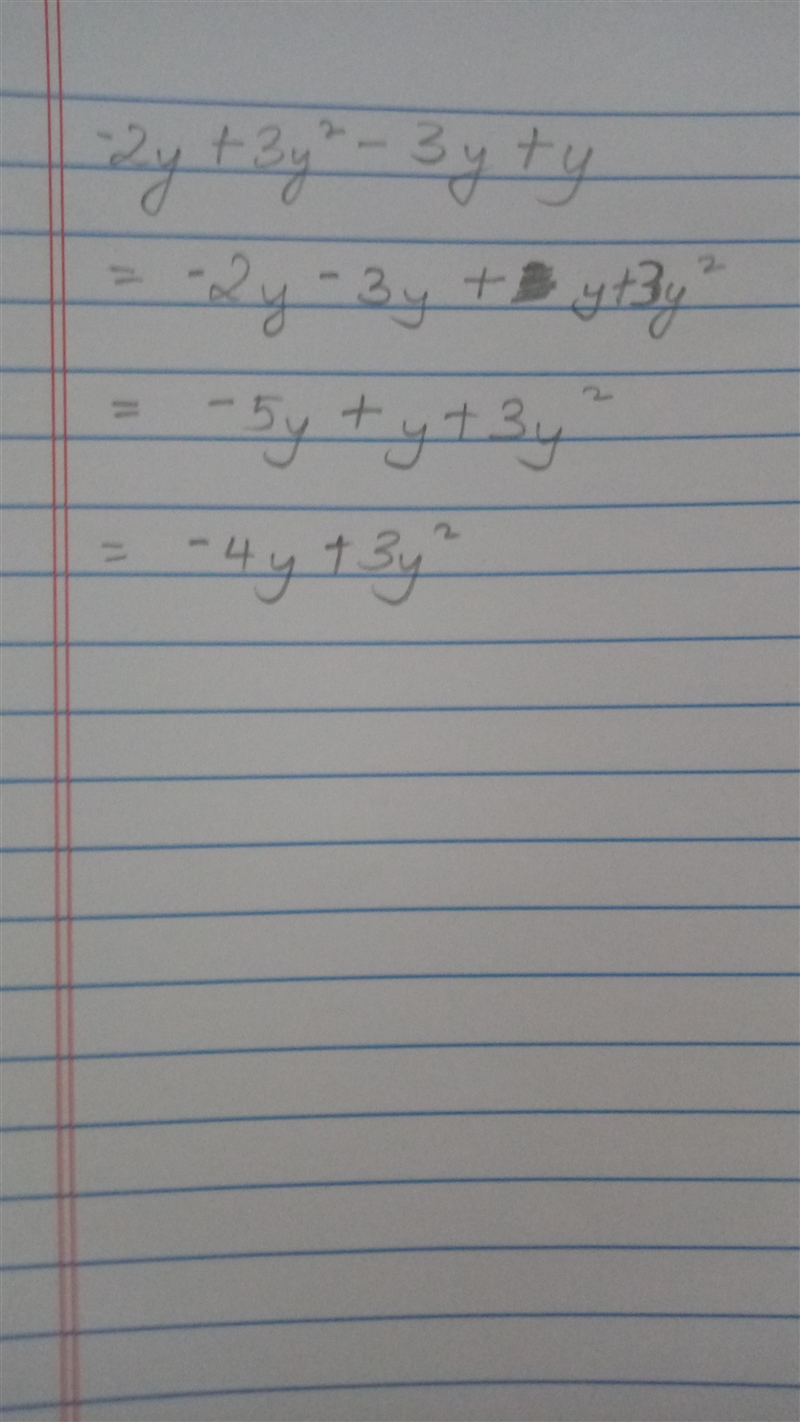 -2y + 3y² - 3y + y
= -2y - 3y + y + 3y²
= -5y + y + 3y²
= -4y + 3y²